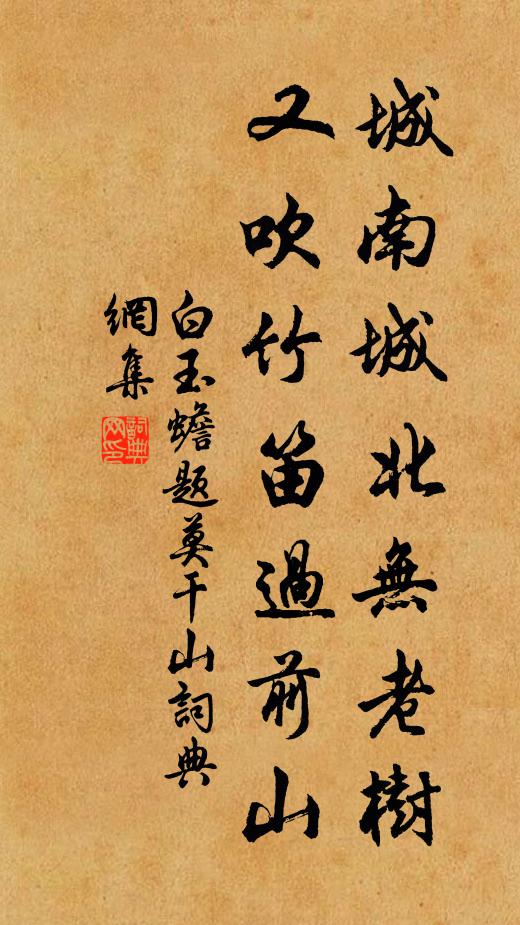 城南城北無老樹
又吹竹笛過前山
白玉蟾題莫干山詞典
網集
詞典網印